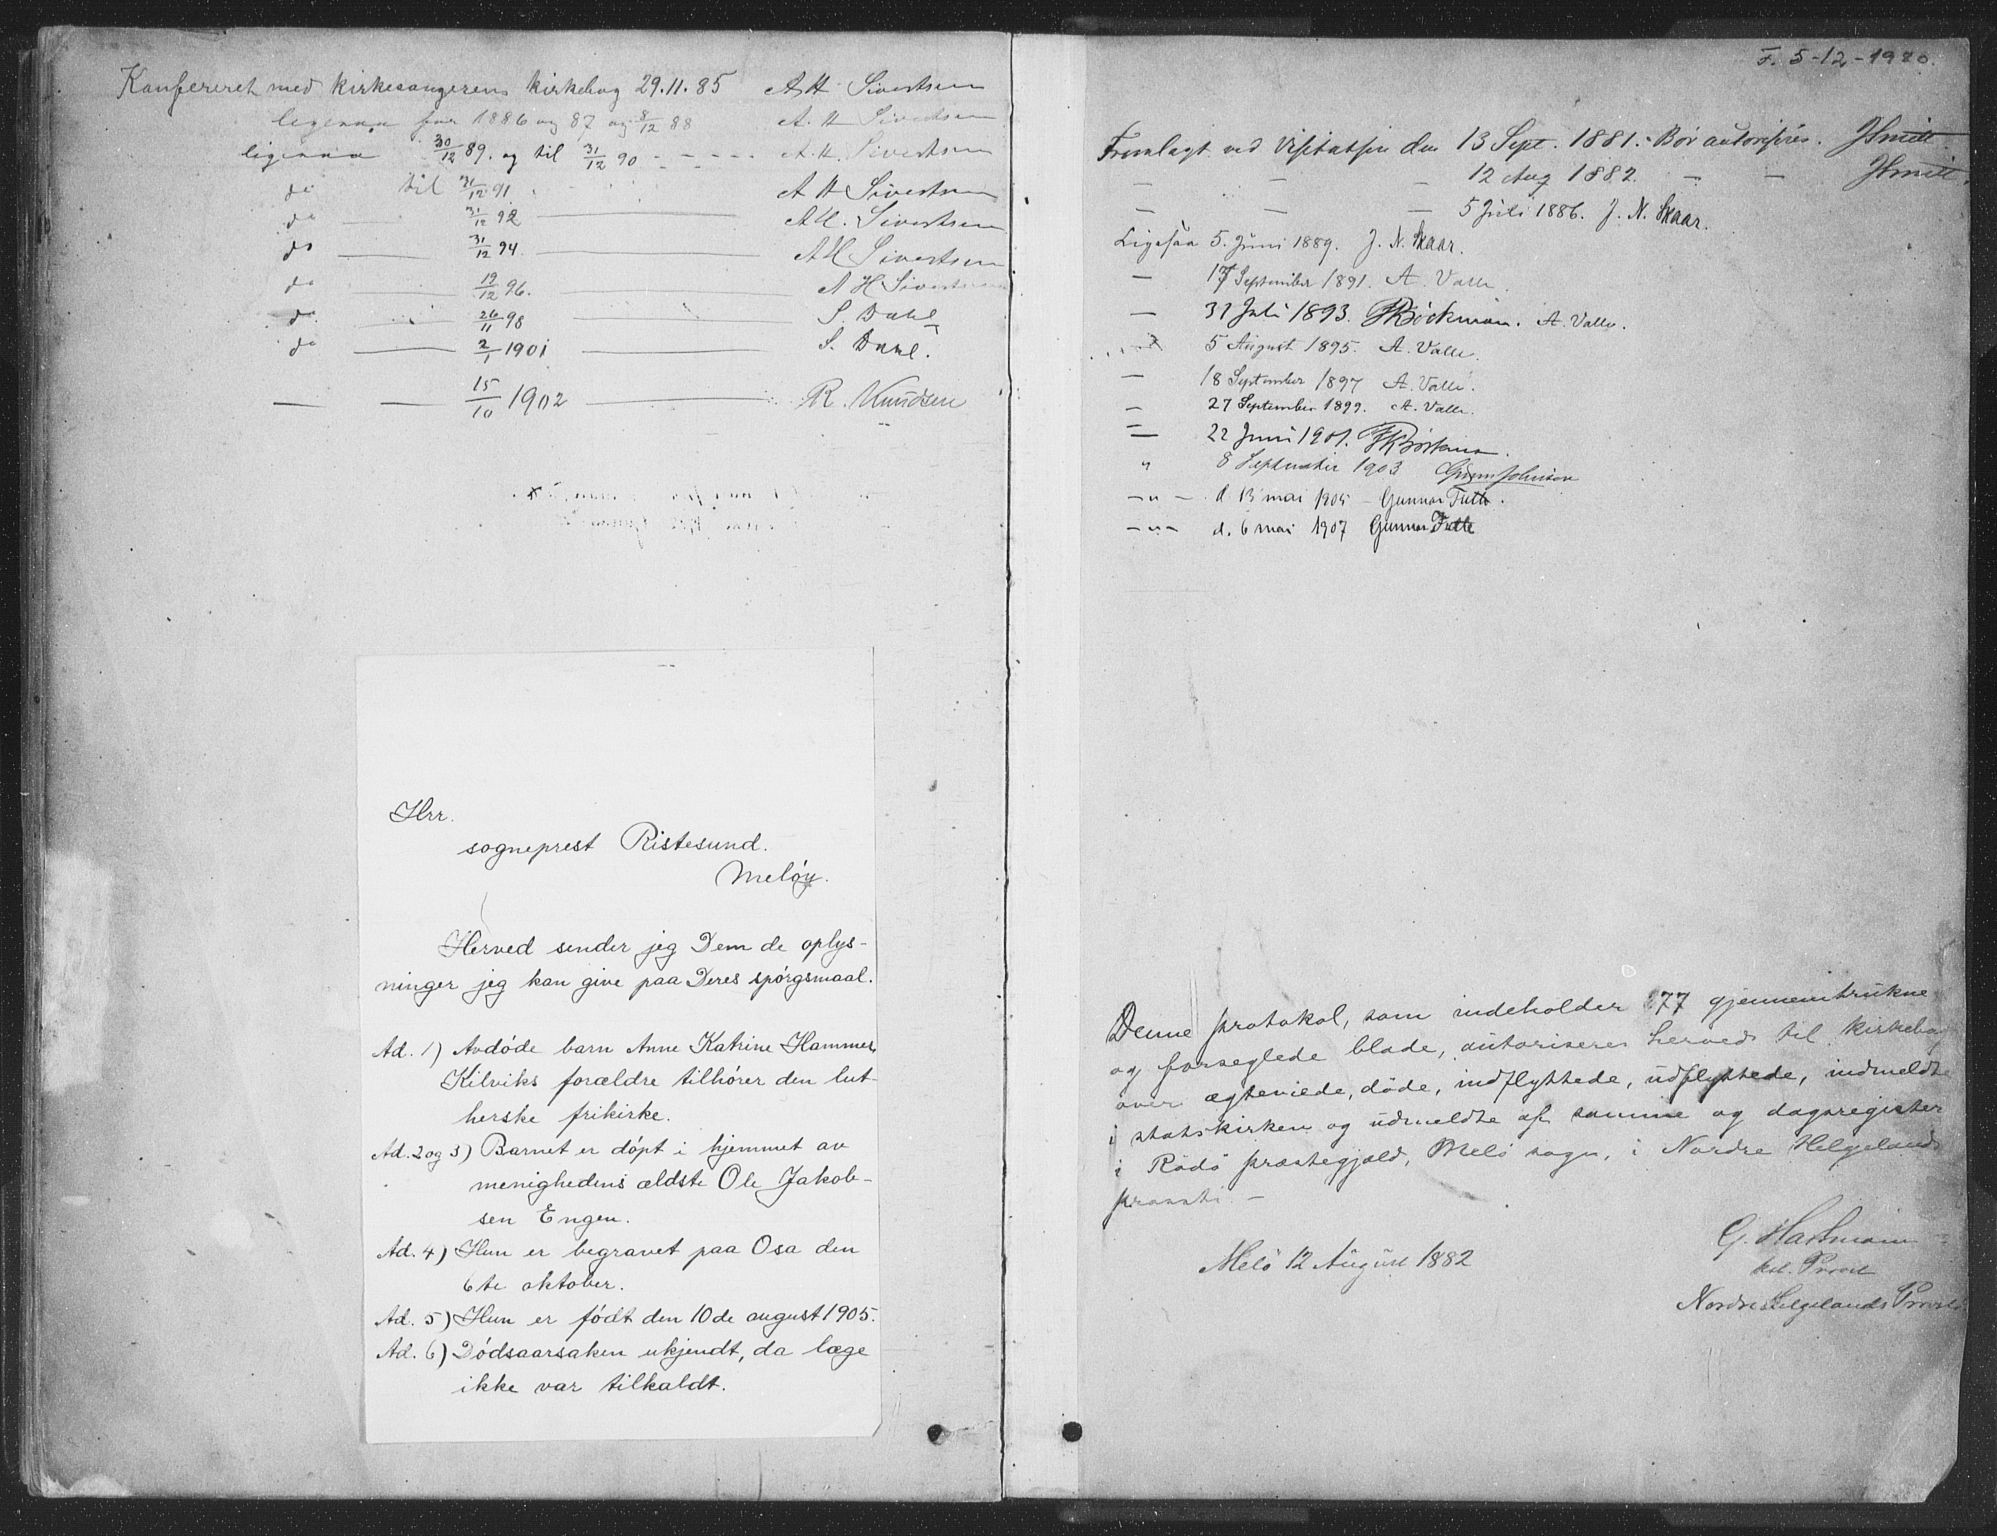 Konfereret med kirkesangerens kirkebog 29.11.85 A H Sivertsen
ligesaa for 1886 og 87 og 8/12 88 A. H Sivertsen
ligesaa 30/12 89. og til 31/12 90 - - - - A. H. Sivertsen
do til 31/12 91. A H Sivertsen
do — 31/12 92 — A H. Sivertsen
do — 31/12 94 — A H Sivertsen
do — 19/12 96. — A H Sivertsen
do — 26/11 98 — S. Dahl
do — 2/1 1901 — S. Dahl.
— — 15/10 1902 — R. Knudsen
Hrr.
sogneprest Ristesund.
Meløy.
Herved sender jeg Dem de oplys-
ninger jeg kan give paa Deres spørgsmaal.
Ad. 1) Avdøde barn Anne Katrine Hammer
Kilviks forældre tilhører den lut-
herske frikirke.
Ad. 2 og 3) Barnet er døpt i hjemmet av
menighedens ældste Ole Jakob-
sen Engen.
Ad. 4) Hun er begravet paa Osa den
6te oktober.
Ad. 5) Hun er født den 10de august 1905.
Ad. 6) Dødsaarsaken ukjendt, da læge
ikke var tilkaldt.
F. 5-12-1980.
Fremlagt ved Visitatsen den 13 Sept. 1881. Bør autoriseres. JSmitt.
— — — 12 Aug 1882. — — JSmitt.
— — — 5 Juli 1886. J. N. Skaar.
Ligesaa 5. Juni 1889. J. N. Skaar.
— 17 September 1891. A. Valle.
— 31 Juli 1893. Bøckman. A. Valle.
5 August 1895. A. Valle.
— 18 September 1897 A. Valle.
— 27 September 1899. A. Valle.
— 22 Juni 1901. Bøckman.
" 8 September 1903 Johnson
— " — d. 13 mai 1905 - Gunnar Tutle.
— " — d. 6 mai 1907 Gunnar Tutle
Denne protokol, som indeholder 277 gjennemtrukne
og forseglede blade, autoriseres herved til kirkebog
over ægteviede, døde, indflyttede, udflyttede, indmeldte
i statskirken og udmeldte af samme og dagsregister
i Rødø præstegjæld, Melø sogn, i Nordre Helgelands
provsti. —
Melö 12 August 1882
G. Hartmann
kst. Provst
Nordre Helgelands Provsti